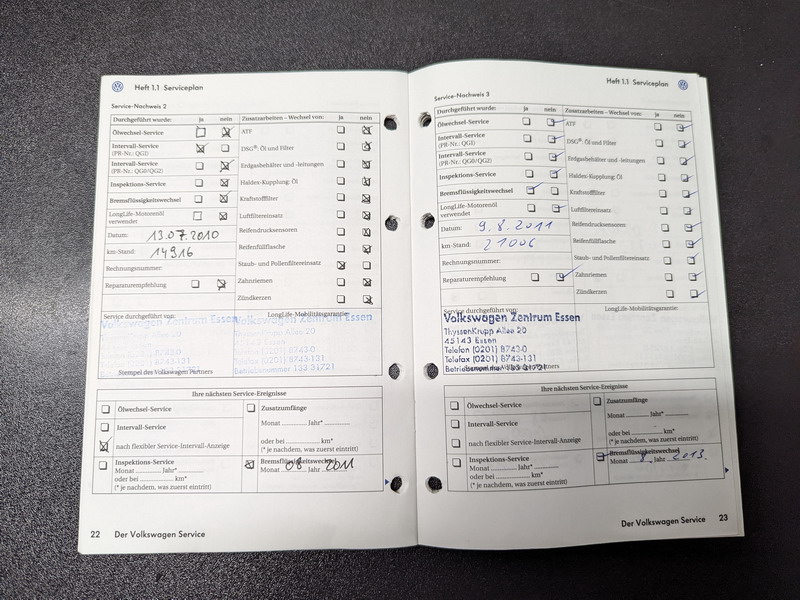 Heft 1.1 Serviceplan
Service-Nachweis 2
Durchgeführt wurde: ja nein
Ölwechsel-Service
Intervall-Service
(PR-Nr.: QG1)
Intervall-Service
(PR-Nr.: QG0/QG2)
Inspektions-Service
Bremsflüssigkeitswechsel
LongLife-Motorenöl
verwendet
Datum: 13.07.2010
km-Stand: 14916
Rechnungsnummer:
Reparaturempfehlung
Zusatzarbeiten – Wechsel von: ja nein
ATF
DSG®: Öl und Filter
Erdgasbehälter und -leitungen
Haldex-Kupplung: Öl
Kraftstofffilter
Luftfiltereinsatz
Reifendrucksensoren
Reifenfüllflasche
Staub- und Pollenfiltereinsatz
Zahnriemen
Zündkerzen
Service durchgeführt von: LongLife-Mobilitätsgarantie:
Volkswagen Zentrum Essen
ThyssenKrupp Allee 20
45143 Essen
Telefon (0201) 8743-0
Telefax (0201) 8743-131
Volkswagen Zentrum Essen
ThyssenKrupp Allee 20
45143 Essen
Telefon (0201) 8743-0
Telefax (0201) 8743-131
Betriebsnummer 133 31721
Stempel des Volkswagen Partners
Ihre nächsten Service-Ereignisse
Ölwechsel-Service
Intervall-Service
nach flexibler Service-Intervall-Anzeige
Inspektions-Service
Monat Jahr*
oder bei km*
(* je nachdem, was zuerst eintritt)
Zusatzumfänge
Monat Jahr*
oder bei km*
(* je nachdem, was zuerst eintritt)
Bremsflüssigkeitswechsel
Monat 08 Jahr 2011
22 Der Volkswagen Service
Heft 1.1 Serviceplan
Service-Nachweis 3
Durchgeführt wurde: ja nein
Ölwechsel-Service
Intervall-Service
(PR-Nr.: QG1)
Intervall-Service
(PR-Nr.: QG0/QG2)
Inspektions-Service
Bremsflüssigkeitswechsel
LongLife-Motorenöl
verwendet
Datum: 9.8.2011
km-Stand: 21006
Rechnungsnummer:
Reparaturempfehlung
Zusatzarbeiten – Wechsel von: ja nein
ATF
DSG®: Öl und Filter
Erdgasbehälter und -leitungen
Haldex-Kupplung: Öl
Kraftstofffilter
Luftfiltereinsatz
Reifendrucksensoren
Reifenfüllflasche
Staub- und Pollenfiltereinsatz
Zahnriemen
Zündkerzen
Service durchgeführt von: LongLife-Mobilitätsgarantie:
Volkswagen Zentrum Essen
ThyssenKrupp Allee 20
45143 Essen
Telefon (0201) 8743-0
Telefax (0201) 8743-131
Betriebsnummer 133 31721
Stempel des Volkswagen Partners
Ihre nächsten Service-Ereignisse
Ölwechsel-Service
Intervall-Service
nach flexibler Service-Intervall-Anzeige
Inspektions-Service
Monat Jahr*
oder bei km*
(* je nachdem, was zuerst eintritt)
Zusatzumfänge
Monat Jahr*
oder bei km*
(* je nachdem, was zuerst eintritt)
Bremsflüssigkeitswechsel
Monat 8 Jahr 2013
Der Volkswagen Service 23